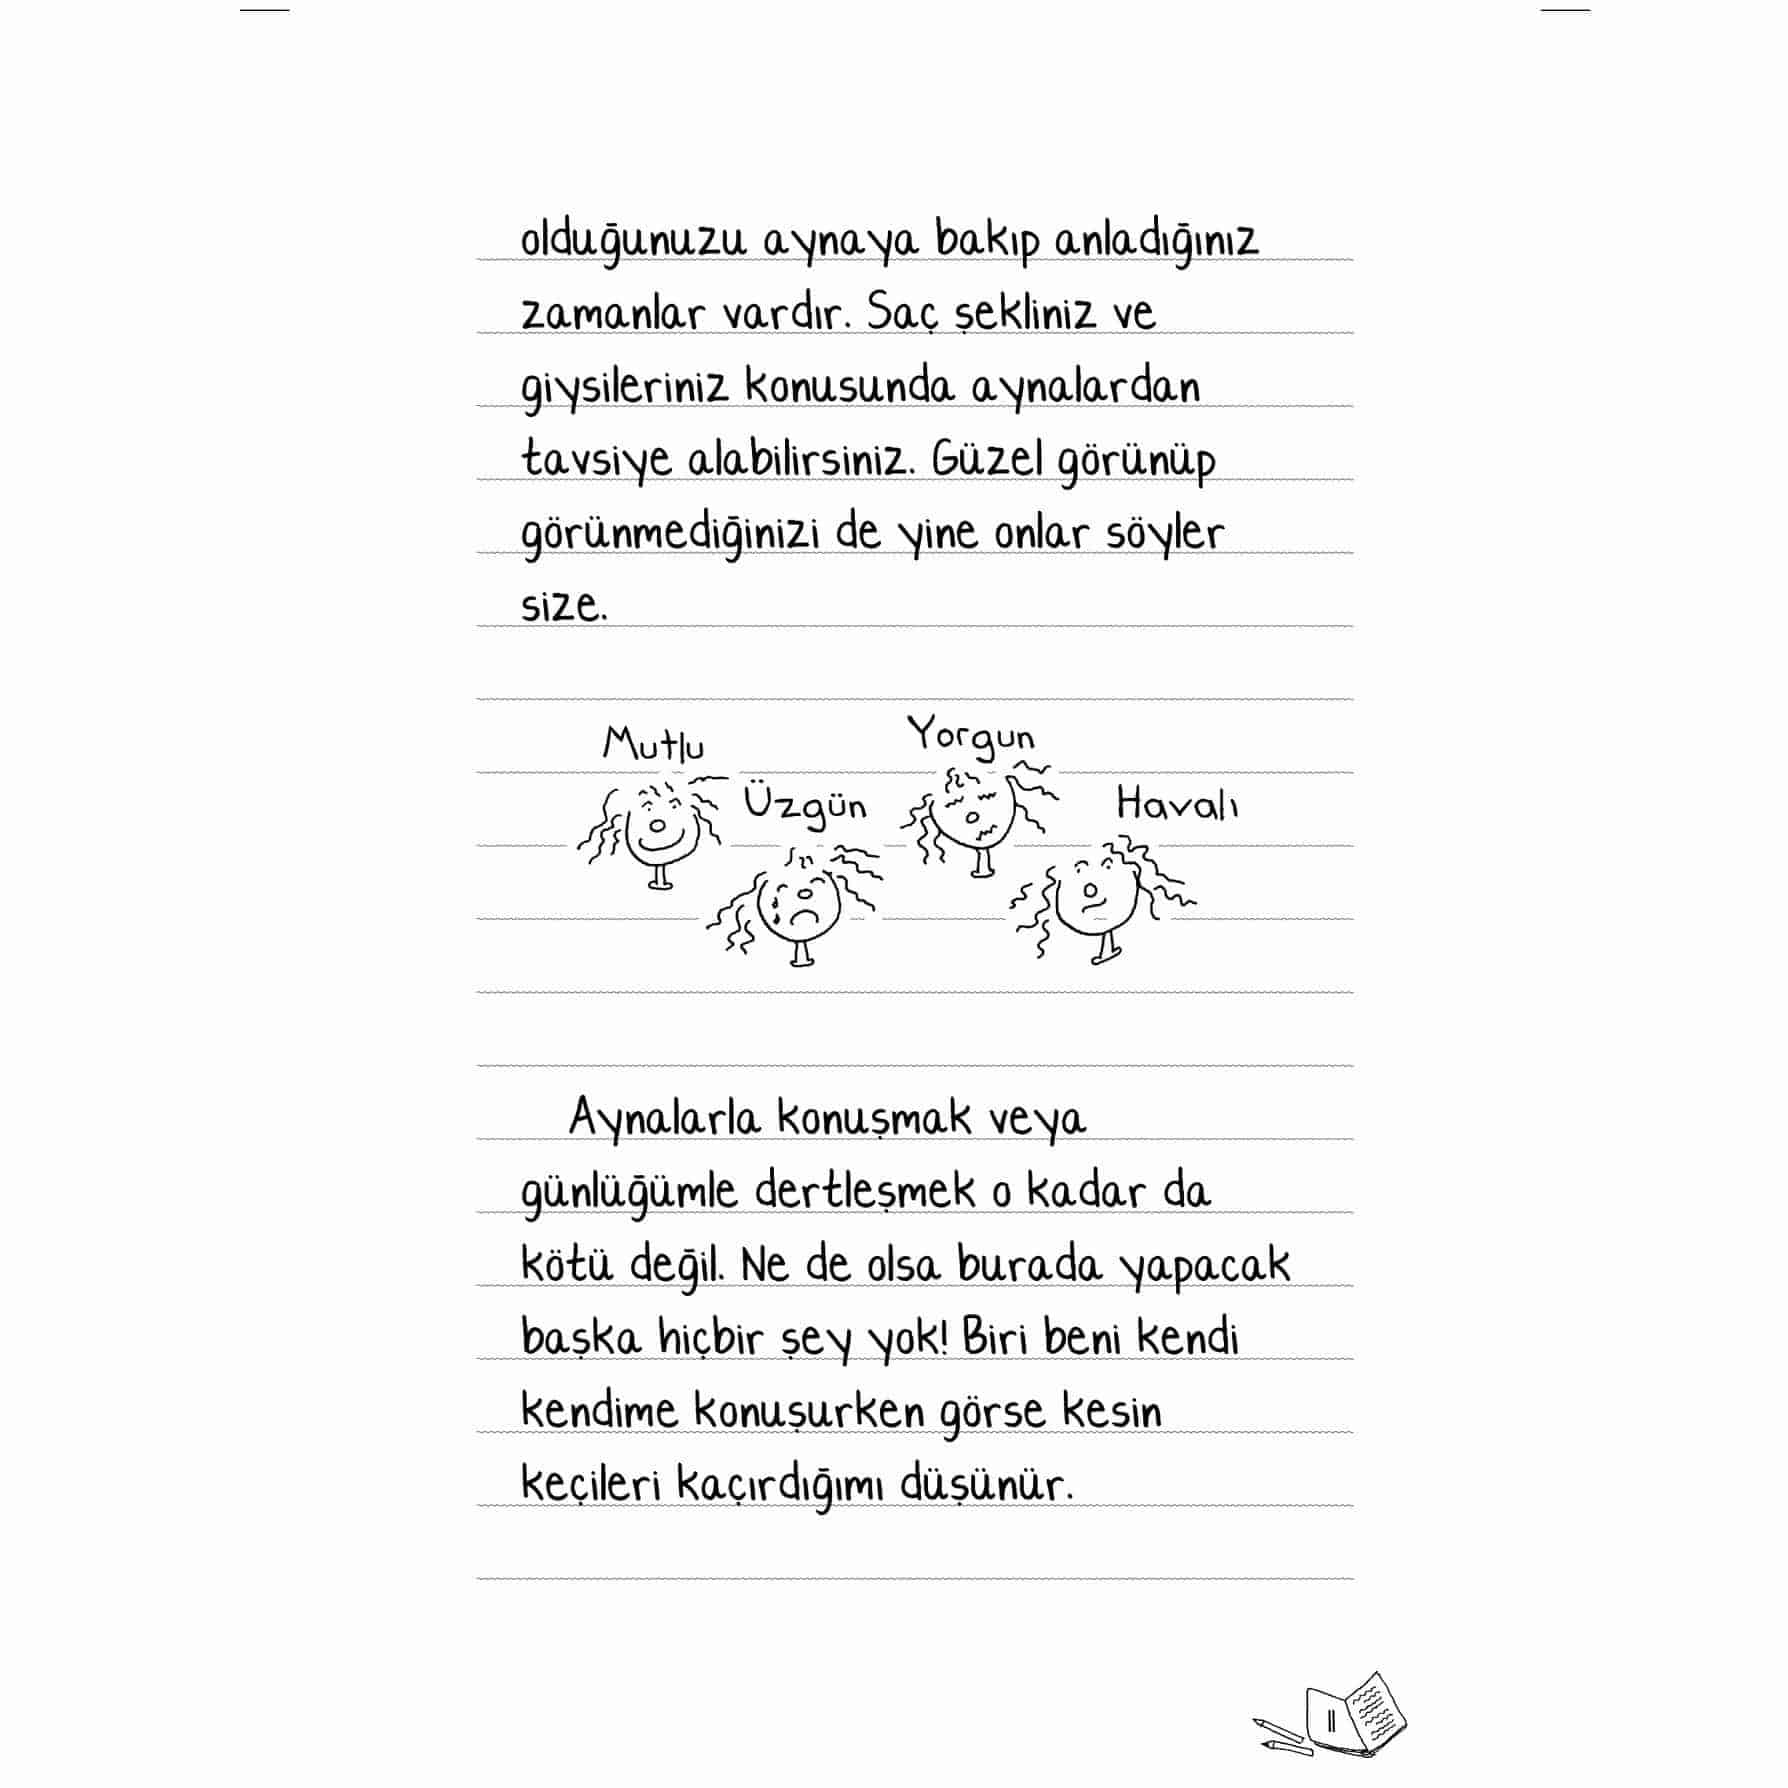 olduğunuzu aynaya bakıp anladığınız
zamanlar vardır. Saç şekliniz ve
giysileriniz konusunda aynalardan
tavsiye alabilirsiniz. Güzel görünüp
görünmediğinizi de yine onlar söyler
size.
Mutlu
Üzgün
Yorgun
Havalı
Aynalarla konuşmak veya
günlüğümle dertleşmek o kadar da
kötü değil. Ne de olsa burada yapacak
başka hiçbir şey yok! Biri beni kendi
kendime konuşurken görse kesin
keçileri kaçırdığımı düşünür.
11